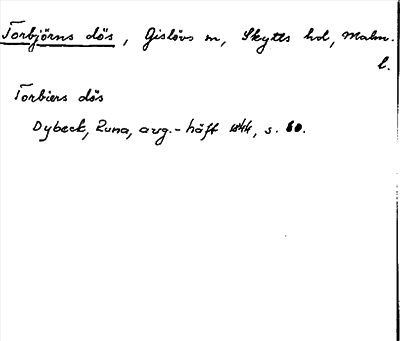 Torbjörns dös, Gislövs sn, Skytts hd, Malm.
l.
Torbiers dös
Dybeck, Runa, avg.-häft 1844, s. 60.